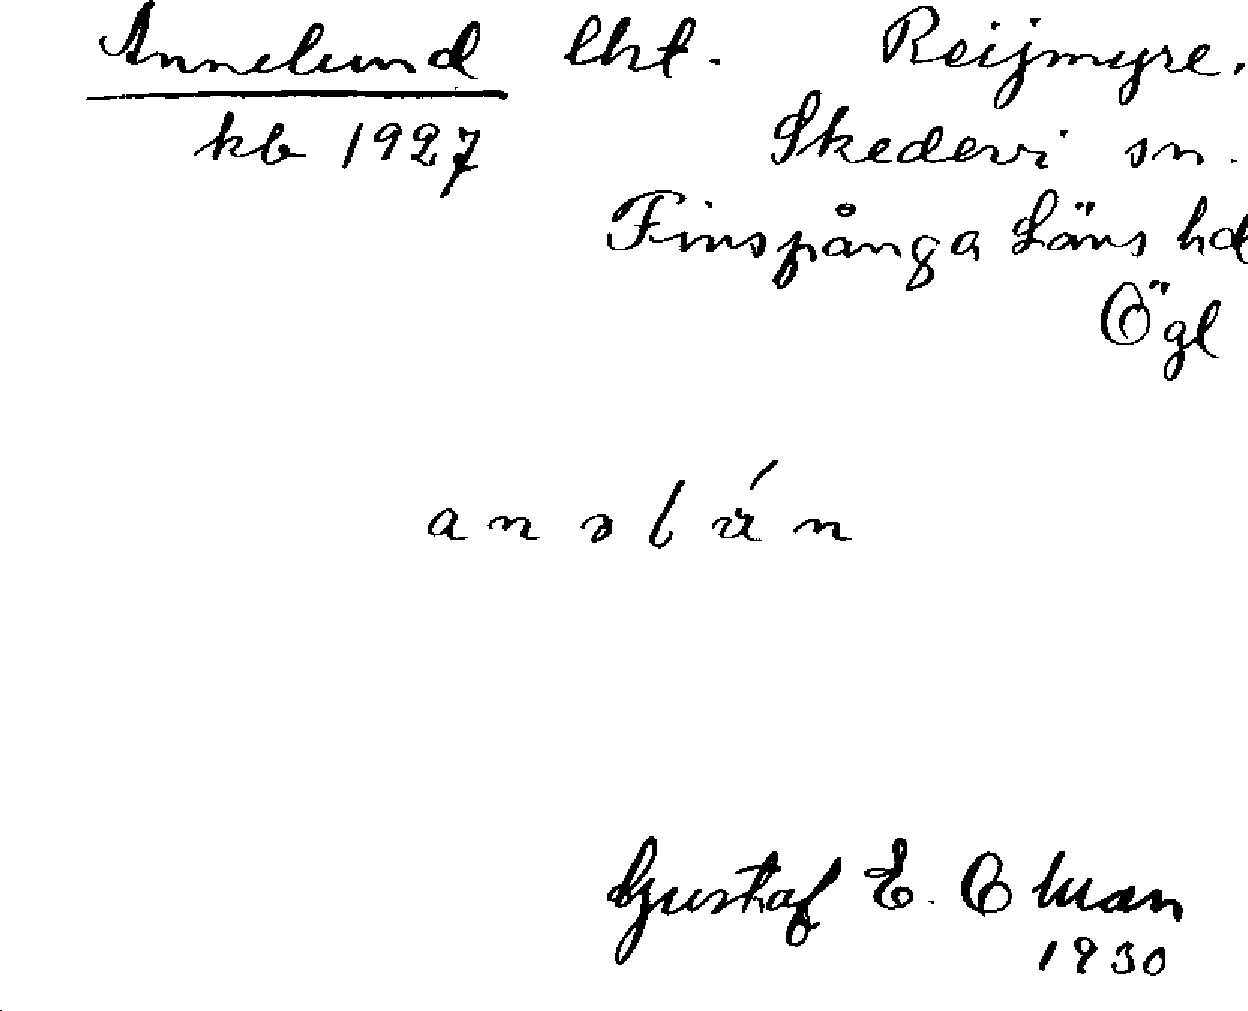 Annelund lht. Reijmyre.
kb 1927 Skedevi sn.
Finspånga Läns hd
Ögl
anəlún
Gustaf E. Oman
1930